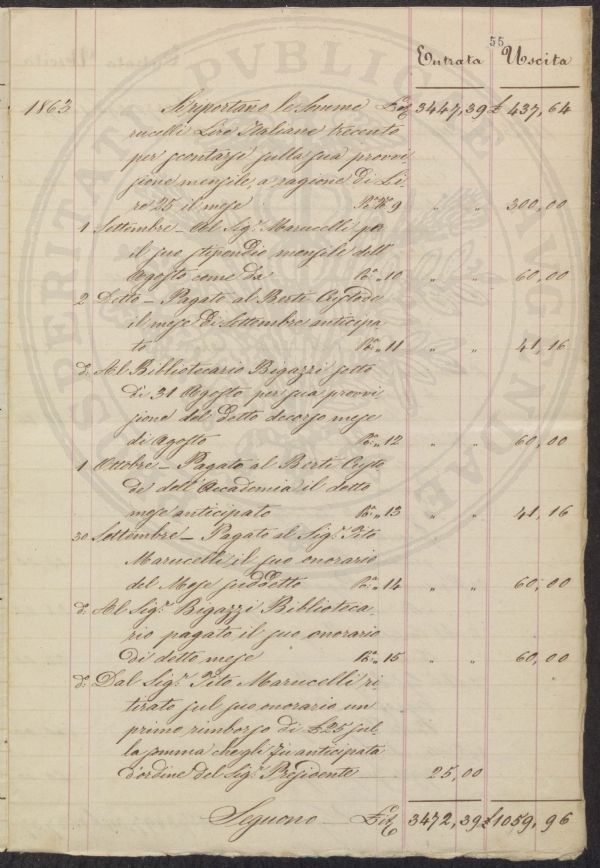 55
Entrata Uscita
1863 Si riportano le Somme £ 3447,39 £ 437,64
rucelli Lire Italiane trecento
per scontarsi sulla sua provvi
sione mensile, a ragione di Li
re 25 il mese N.° 9 " " 300,00
1 Settembre _ Al Sig.r Marucelli per
il suo stipendio mensile dell'
Agosto come da 10 " " 60,00
2 Detto _ Pagato al Berti Custode
il mese di Settembre anticipa
to 11 " " 41,16
d.° Al Bibliotecario Bigazzi sotto
dì 31 Agosto per sua provvi
sione del detto decorso mese
di Agosto 12 " " 60,00
1 Ottobre _ Pagato al Berti Custo
de dell'Accademia il detto
mese anticipato 13 " " 41,16
30 Settembre _ Pagato al Sig.r Tito
Marucelli il suo onorario
del Mese suddetto 14 " " 60,00
d.° Al Sig.r Bigazzi Biblioteca
rio pagato il suo onorario
di detto mese 15 " " 60,00
d.° Dal Sig.r Tito Marucelli ri
tirato sul suo onorario un
primo rimborso di £ 25 sul
la somma che gli fu anticipata
d'ordine del Sig.r Presidente 25,00
Seguono £ 3472,39 £ 1059,96
PVBLICAE